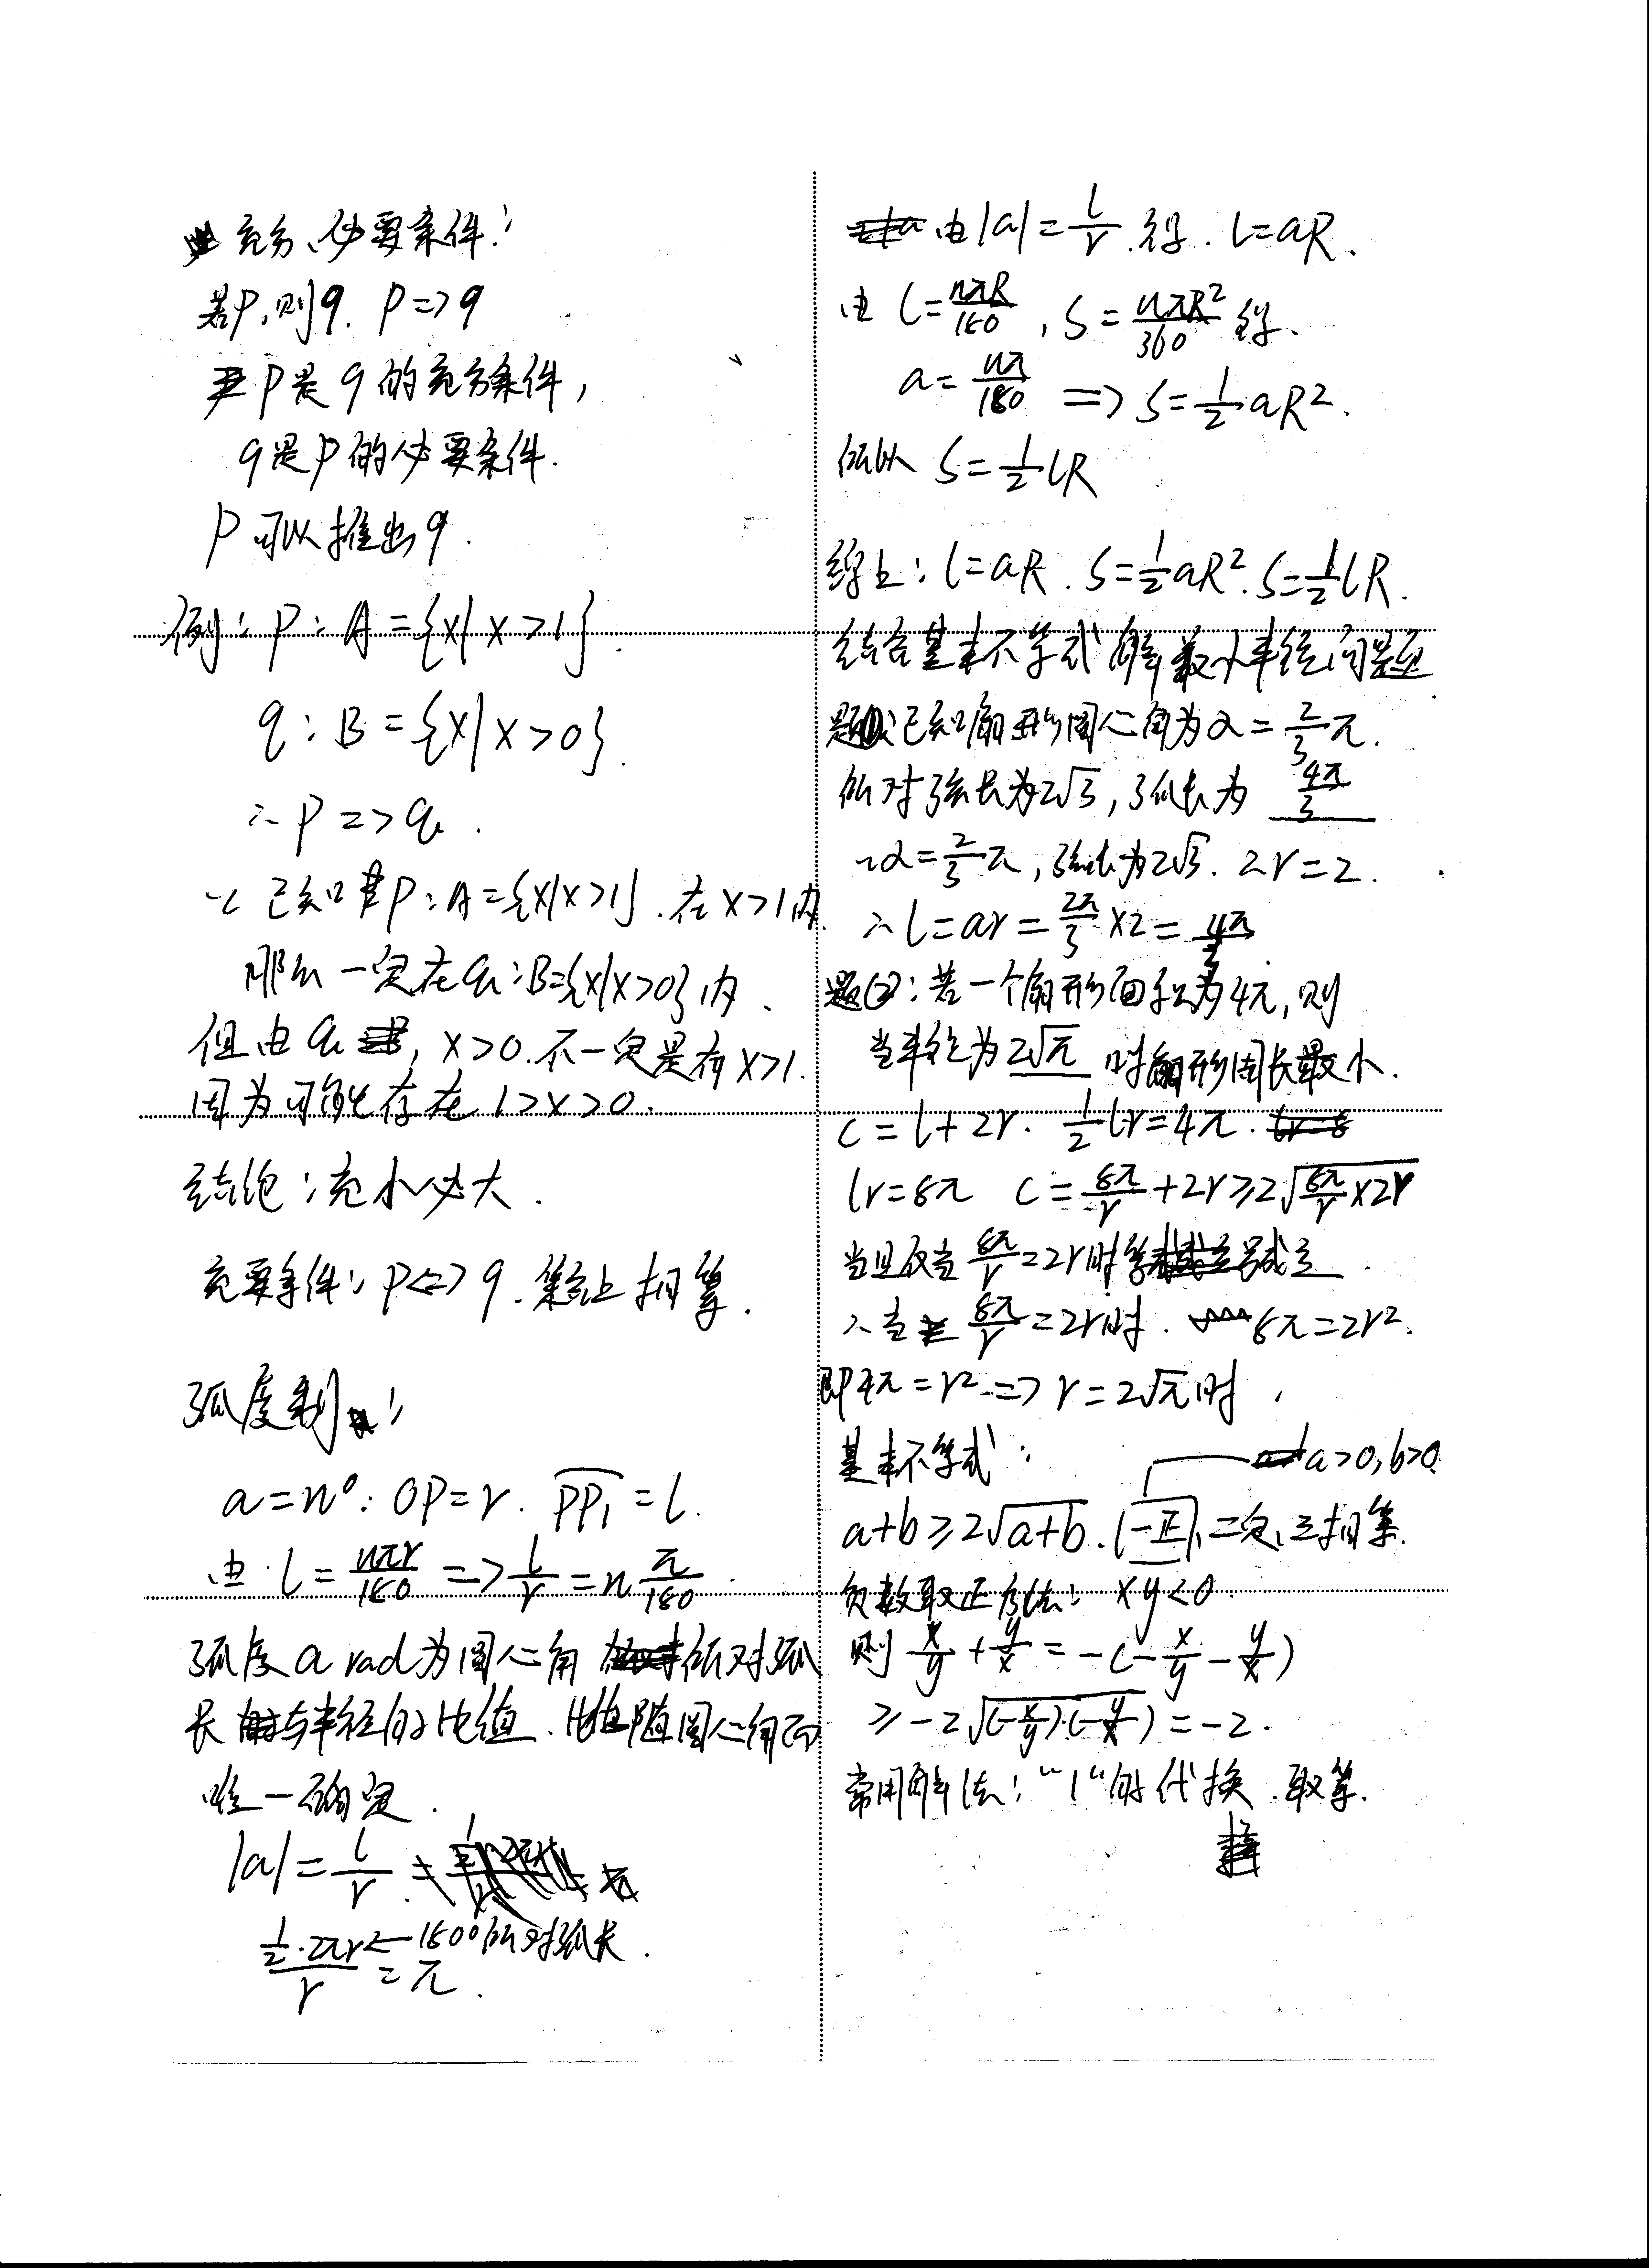 充分、必要条件:
若P,则q. P=>q
P是q的充分条件,
q是P的必要条件.
P可以推出q.
例: P: A={x|x>1}.
q: B={x|x>0}.
∴P=>q.
∵已知P:A={x|x>1}.在x>1内.
那么一定在q:B={x|x>0}内.
但由q, x>0.不一定是有x>1.
因为可能存在1>x>0.
结论:充小必大.
充要条件: P<=>q.集合上相等.
弧度制:
a=n°: OP=r. PP₁=l.
由 l=nπr/180 => l/r=n π/180.
弧度a rad为圆心角所对弧
长与半径的比值.比值随圆心角而
唯一确定.
|a|=l/r.
½·2πr/r ← 180°所对弧长.
=π.
由|a|=l/r.得. l=aR.
由 l=nπR/180, S=nπR²/360 得.
a=nπ/180 => S=½aR².
所以 S=½lR
综上: l=aR. S=½aR². S=½lR.
结合基本不等式解最小半径问题.
题(1):已知扇形圆心角为α=2/3π.
所对弦长为2√3,弧长为 4π/3
∵α=2/3π,弦长为2√3. ∴r=2.
∴l=ar=2π/3×2=4π/3
题(2):若一个扇形面积为4π,则
当半径为2√π 时扇形周长最小.
C=l+2r. ½lr=4π.
lr=8π C=8π/r+2r≥2√(8π/r×2r)
当且仅当8π/r=2r时等号成立.
∴当8π/r=2r时. 8π=2r².
即4π=r²=>r=2√π时.
基本不等式: a>0,b>0.
a+b≥2√a+b.(一正),二定,三相等.
负数取正方法: xy<0.
则x/y+y/x=-(-x/y-y/x)
≥-2√(-x/y)·(-y/x)=-2.
常用解法:"1"的代换.取等.